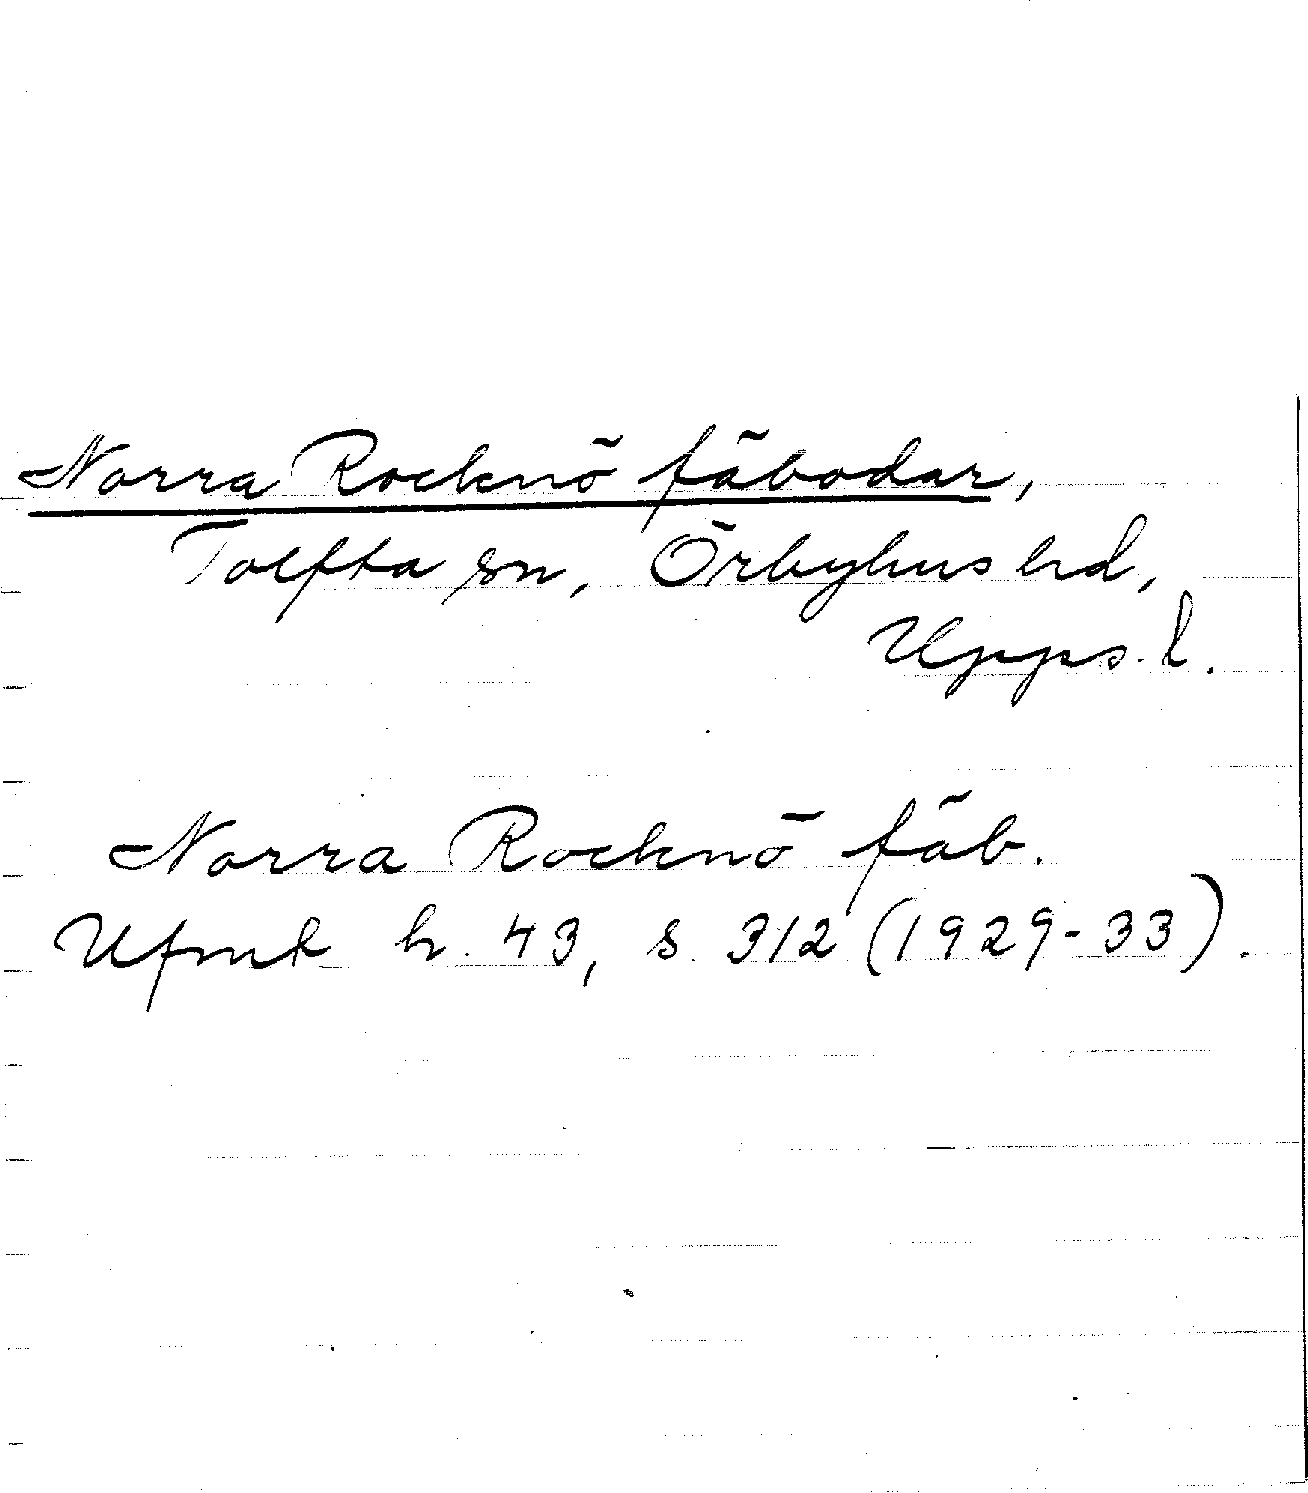 Norra Rocknö fäbodar,
Tolfta sn, Örbyhus hd,
Upps. l.
Norra Rocknö fäb.
Ufmt h. 43, s. 312 (1929-33).